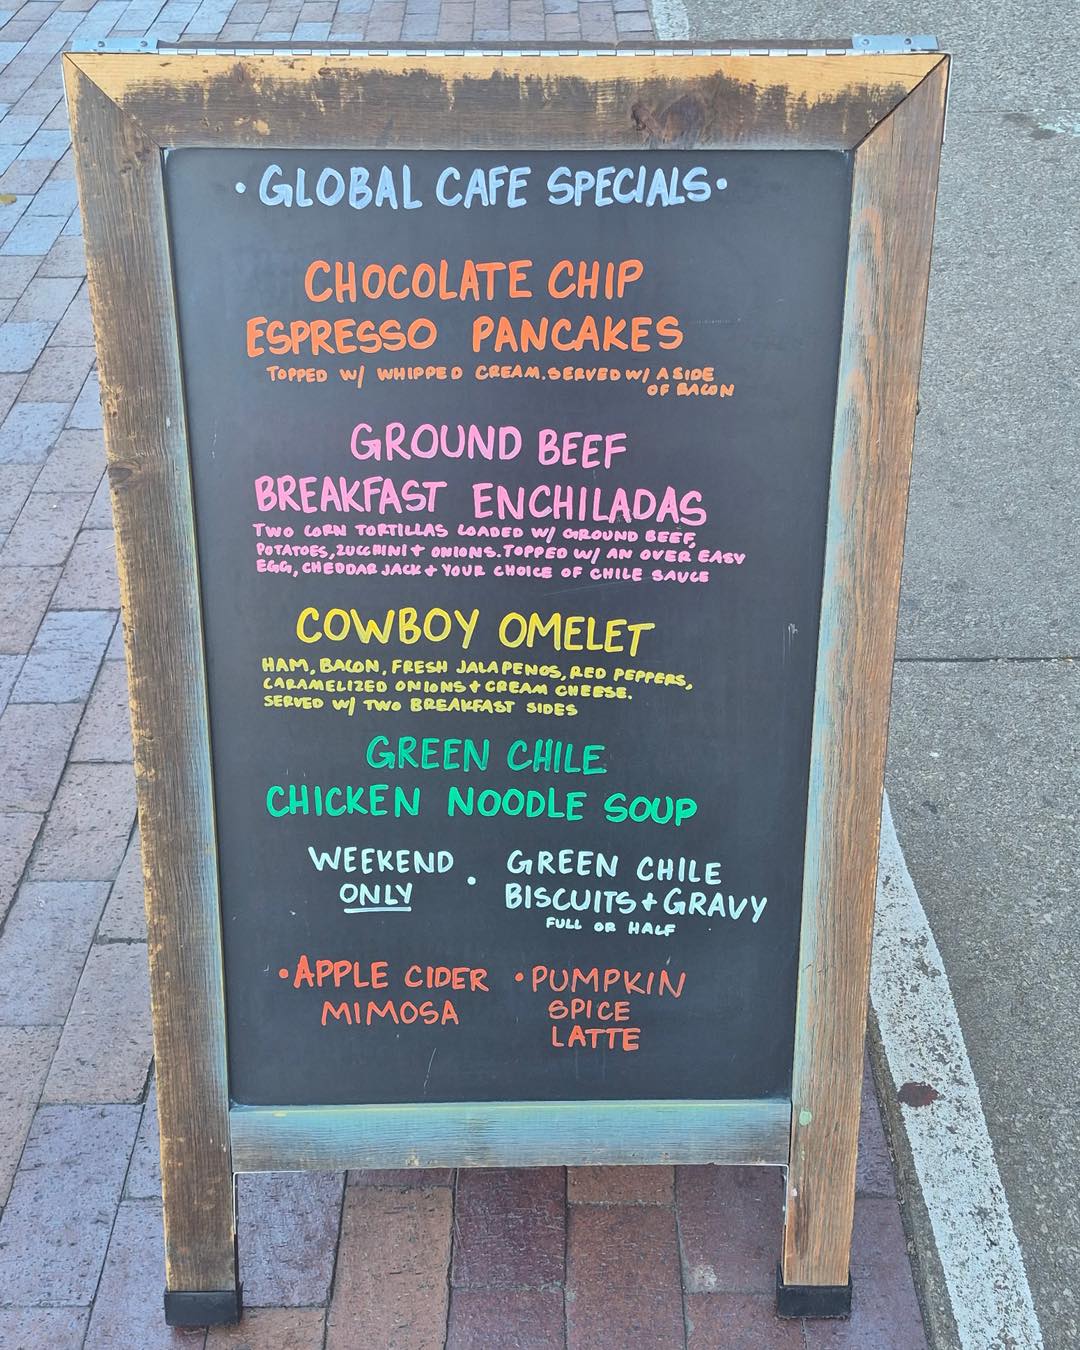 • GLOBAL CAFE SPECIALS •
CHOCOLATE CHIP
ESPRESSO PANCAKES
TOPPED W/ WHIPPED CREAM. SERVED W/ A SIDE
OF BACON
GROUND BEEF
BREAKFAST ENCHILADAS
TWO CORN TORTILLAS LOADED W/ GROUND BEEF,
POTATOES, ZUCCHINI + ONIONS. TOPPED W/ AN OVER EASY
EGG, CHEDDAR JACK + YOUR CHOICE OF CHILE SAUCE
COWBOY OMELET
HAM, BACON, FRESH JALAPENOS, RED PEPPERS,
CARAMELIZED ONIONS + CREAM CHEESE.
SERVED W/ TWO BREAKFAST SIDES
GREEN CHILE
CHICKEN NOODLE SOUP
WEEKEND
ONLY
• GREEN CHILE
BISCUITS + GRAVY
FULL OR HALF
• APPLE CIDER
MIMOSA
• PUMPKIN
SPICE
LATTE